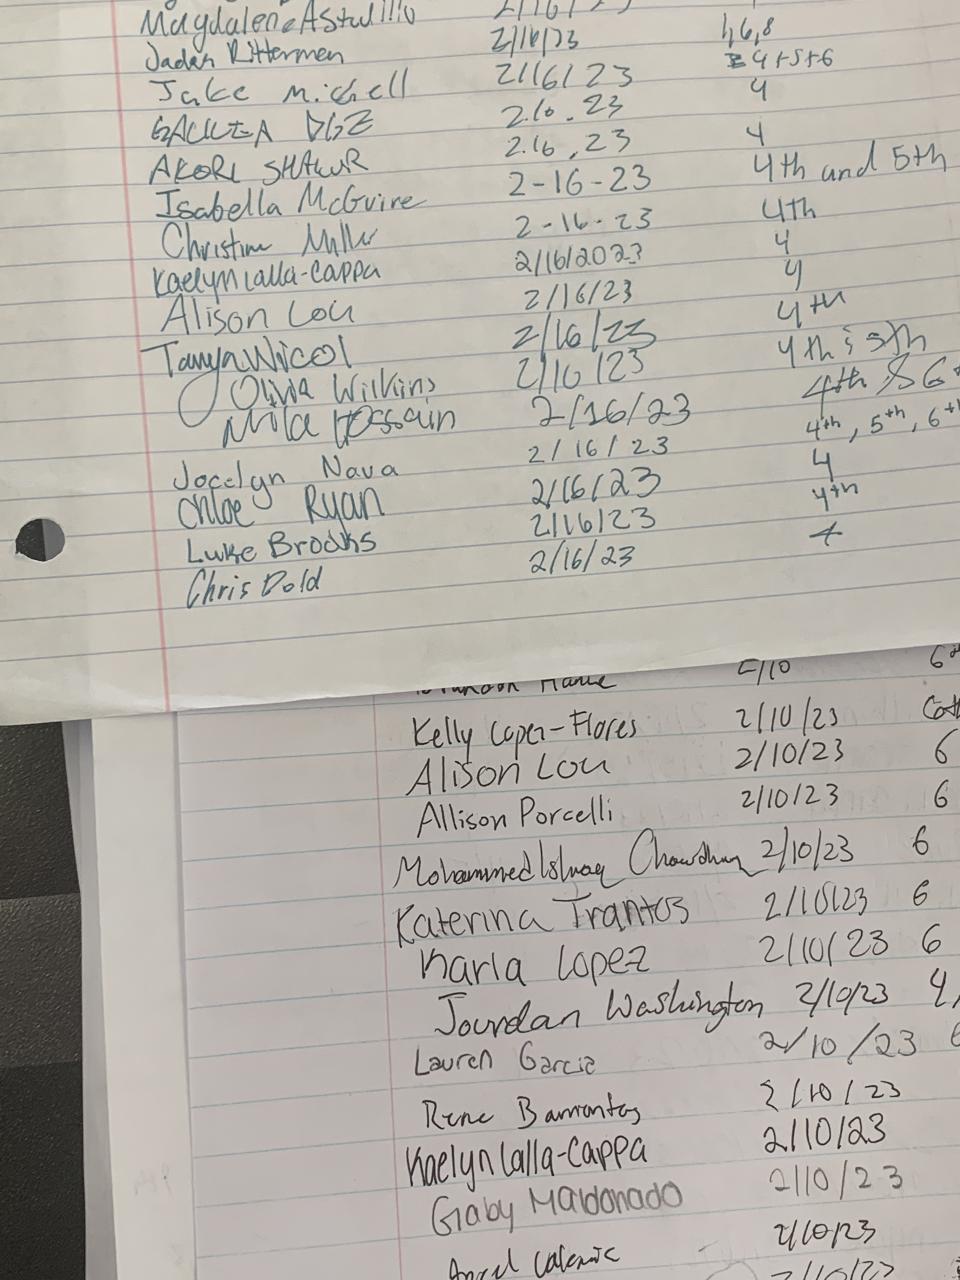 Magdalena Astudillo 2/16/23
Jadah Ritterman 2/16/23 1,6,8
Jake Michell 2/16/23 4+5+6
2.16.23 4
AKORI SHAKUR 2.16.23 4
Isabella McGuire 2-16-23 4th and 5th
Christine Miller 2-16-23 4th
Kaelyn Lalla-Cappa 2/16/2023 4
Alison Lou 2/16/23 4
Tanya Nicol 2/16/23 4th
Olivia Wilkins 2/16/23 4th & 5th
Mila Hossain 2/16/23 4th & 6
Jocelyn Nava 2/16/23 4th, 5th, 6th
Chloe Ryan 2/16/23 4
Luke Brooks 2/16/23 4th
Chris Dold 2/16/23 4
2/10
Kelly Coper-Flores 2/10/23
Alison Lou 2/10/23 6
Allison Porcelli 2/10/23 6
Mohammed Ishraq Chowdhury 2/10/23 6
Katerina Trantos 2/10/23 6
Karla Lopez 2/10/23 6
Jourdan Washington 2/10/23 4,
Lauren Garcia 2/10/23
Rene Barrantos 2/10/23
Kaelyn Lalla-Cappa 2/10/23
Gaby Maldonado 2/10/23
Angel 2/10/23
2/10/23